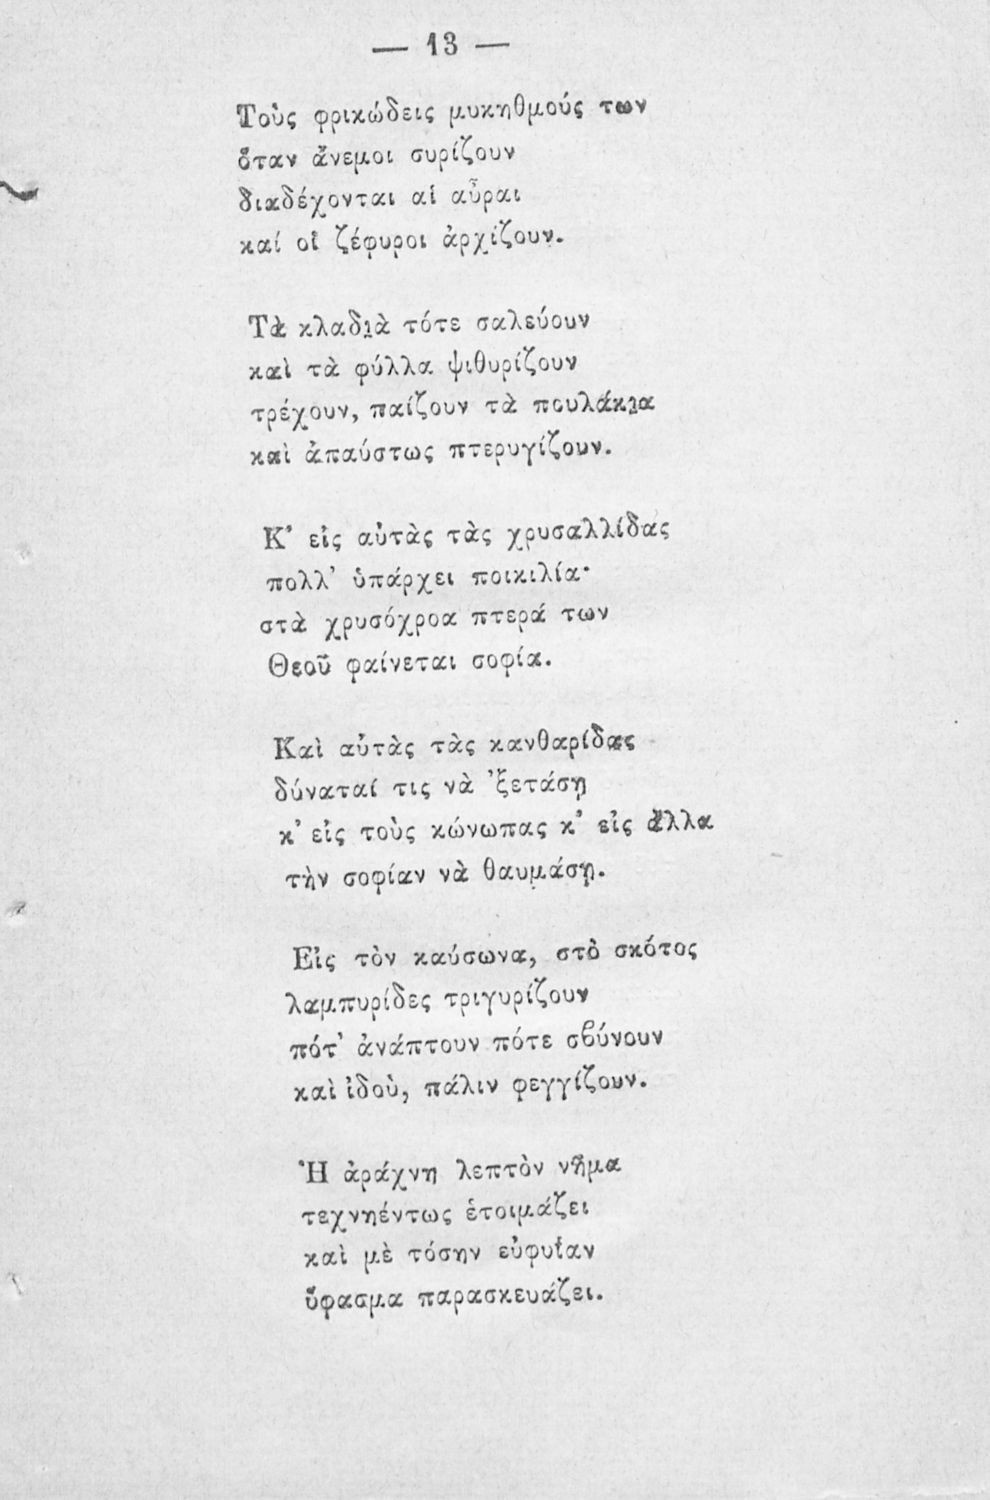 — 13 —
Τοὺς φρικώδεις μυκηθμούς των
ὅταν ἄνεμοι συρίζουν
διαδέχονται αἱ αὖραι
καί οἱ ζέφυροι ἀρχίζουν.
Τὰ κλαδιὰ τότε σαλεύουν
καὶ τὰ φύλλα ψιθυρίζουν
τρέχουν, παίζουν τὰ πουλάκια
καὶ ἀπαύστως πτερυγίζουν.
Κ' εἰς αὐτὰς τὰς χρυσαλλίδας
πολλ' ὑπάρχει ποικιλία·
στὰ χρυσόχροα πτερά των
Θεοῦ φαίνεται σοφία.
Καὶ αὐτὰς τὰς κανθαρίδας
δύναταί τις νὰ 'ξετάσῃ
κ' εἰς τοὺς κώνωπας κ' εἰς ἄλλα
τὴν σοφίαν νὰ θαυμάσῃ.
Εἰς τὸν καύσωνα, στὸ σκότος
λαμπυρίδες τριγυρίζουν
πότ' ἀνάπτουν πότε σβύνουν
καὶ ἰδοὺ, πάλιν φεγγίζουν.
Ἡ ἀράχνη λεπτὸν νῆμα
τεχνηέντως ἑτοιμάζει
καὶ μὲ τόσην εὐφυΐαν
ὕφασμα παρασκευάζει.